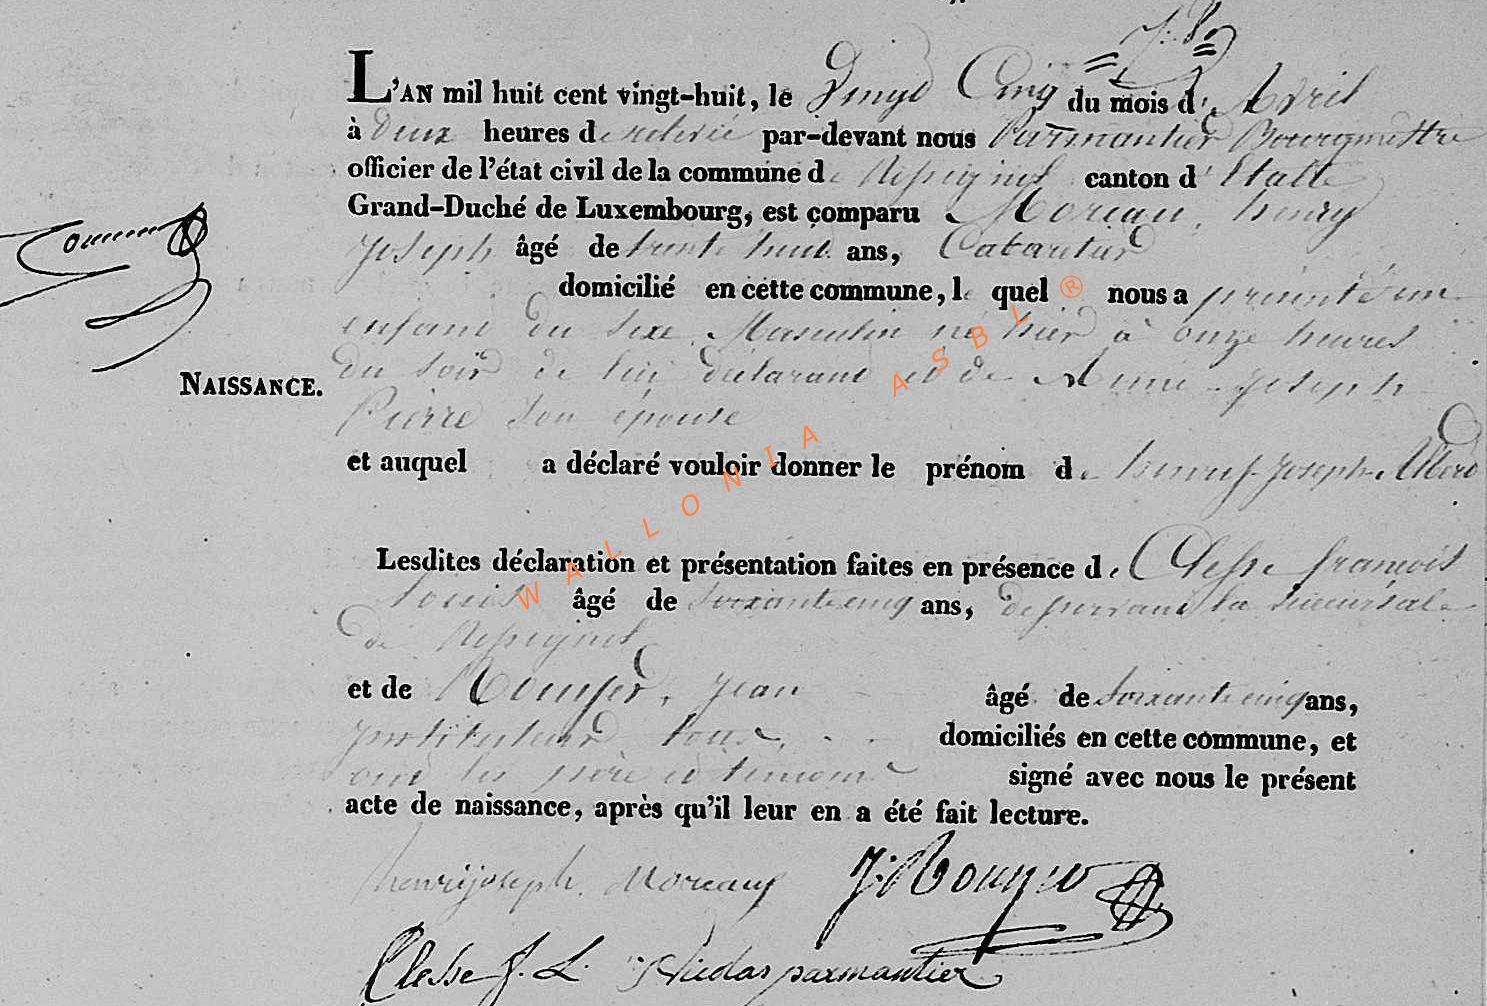 L'AN mil huit cent vingt-huit, le Vingt Cinq du mois d'Avril
à Deux heures de relevée par-devant nous Parmantier Bourgmestre
officier de l'état civil de la commune de canton d'Etalle
Grand-Duché de Luxembourg, est comparu Moreau, henry
Joseph âgé de trente huit ans, Cabaretier
domicilié en cette commune, lequel nous a présenté un
enfant du sexe Masculin né hier à onze heures
du soir de lui déclarant et de Anne-Joseph
Pierre son épouse
NAISSANCE.
et auquel a déclaré vouloir donner le prénom de Joseph Albert
Lesdites déclaration et présentation faites en présence de Clesse françois
Louis âgé de soixante cinq ans, desservant la succursale
de
et de Jean âgé de soixante cinq ans,
instituteur tous domiciliés en cette commune, et
ont les père et témoins signé avec nous le présent
acte de naissance, après qu'il leur en a été fait lecture.
henrijoseph Moreaux
Clesse f. L. Nicolas parmantier
WALLONIA ASBL ®